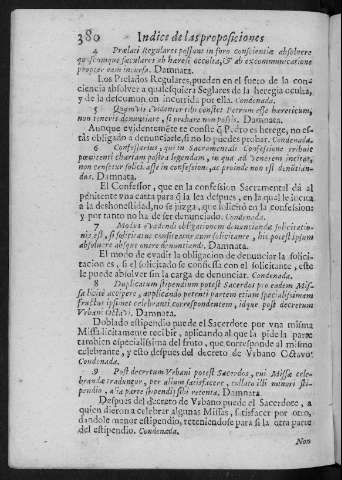 380 Indice de las proposiciones
4 Prælati Regulares possunt in foro conscientiæ absolvere
quoscumque sæculares ab hæresi occulta, & ab excommunicatione
propter eam incursa. Damnata.
Los Prelados Regulares, pueden en el fuero de la con-
ciencia absolver a qualesquiera Seglares de la heregia oculta,
y de la descomunion incurrida por ella. Condenada.
5 Quamvis evidenter tibi constet Petrum esse hæreticum,
non teneris denuntiare, si probare non possis. Damnata.
Aunque evidentemēte te conste q̄ Pedro es herege, no es-
tàs obligado a denunciarle, si no lo puedes probar. Condenada.
6 Confessarius, qui in Sacramentali Confessione tribuit
pœnitenti chartam postea legendam, in qua ad Venerem incitat,
non censetur solicitasse in confessione, ac proinde non est denūtian-
dus. Damnata.
El Confessor, que en la confession Sacramental dà al
penitente vna carta para q̄ la lea despues, en la qual le incita
a la deshonestidad, no se juzga, que solicitò en la confession;
y por tanto no ha de ser denunciado. Condenada.
7 Modus evadendi obligationem denuntiandæ solicitatio-
nis est, si solicitatus confiteatur cum solicitante, hic potest ipsum
absolvere absque onere denuntiandi. Damnata.
El modo de evadir la obligacion de denunciar la solici-
tacion es, si el solicitado se confiessa con el solicitante, este
le puede absolver sin la carga de denunciar. Condenada.
8 Duplicatum stipendium potest Sacerdos pro eadem Mis-
sa licitè accipere, applicando petenti partem etiam specialissimam
fructus ipsimet celebranti correspondentem, idque post decretum
Vrbani Octavi. Damnata.
Doblado estipendio puede el Sacerdote por vna misma
Missa licitamente recibir, aplicando al que la pide la parte
tambien especialissima del fruto, que corresponde al mismo
celebrante, y esto despues del decreto de Vrbano Octavo.
Condenada.
9 Post decretum Vrbani potest Sacerdos, cui Missæ cele-
brandæ traduntur, per alium satisfacere, collato illi minori sti-
pendio, alia parte stipendij sibi retenta. Damnata.
Despues del decreto de Vrbano puede el Sacerdote, a
quien dieron a celebrar algunas Missas, satisfacer por otro,
dandole menor estipendio, reteniendose para si la otra parte
del estipendio. Condenada.
Non